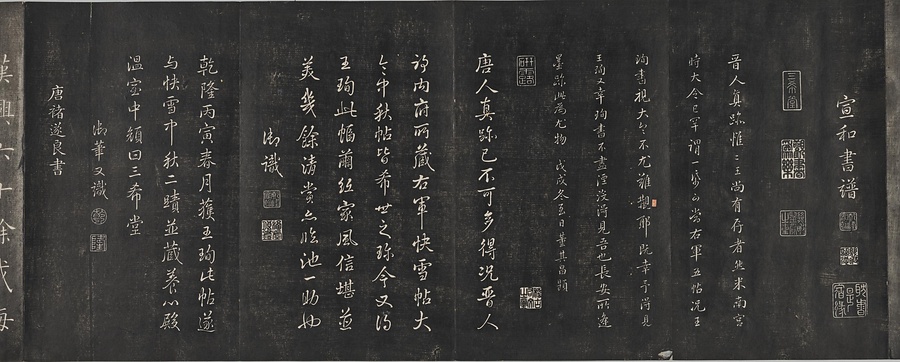 宣和書譜
三希堂
晉人真跡惟二王尚有存者然米南宮
時大令已罕謂一紙可當右軍五帖況王
珣書視大令不尤難覯耶既幸予得見
王珣又幸珣書不盡湮沒得見吾也長安所逢
墨跡此為尤物 戊戌冬至日董其昌題
研露
唐人真跡已不可多得況晉人
耶內府所藏右軍快雪帖大
令中秋帖皆希世之珍今又得
王珣此幅繭紙家風信堪並
美幾餘清賞亦臨池一助也
御識
乾隆丙寅春月獲王珣此帖遂
与快雪中秋二蹟並藏養心殿
溫室中顏曰三希堂
御筆又識
唐褚遂良書
漢興六十餘載海